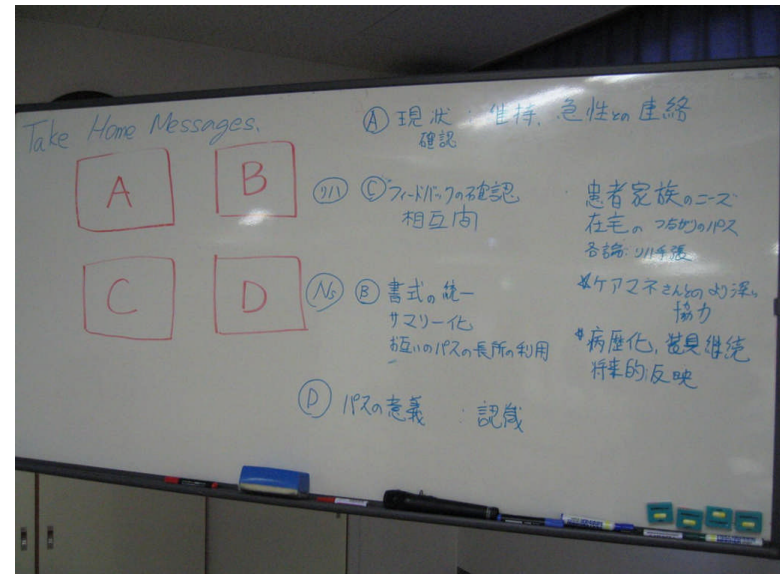 Take Home Messages.
A
B
C
D
Ⓐ 現状 : 維持、急性との連絡
確認
リハ Ⓒ フィードバックの確認
相互向
Ns Ⓑ 書式の統一
サマリー化
お互いのパスの長所の利用
Ⓓ パスの意義 : 認識
患者家族のニーズ
在宅の つながりのパス
各論: リハ手帳
*ケアマネさんとのより深い
協力
*病歴化、 継続
将来的反映